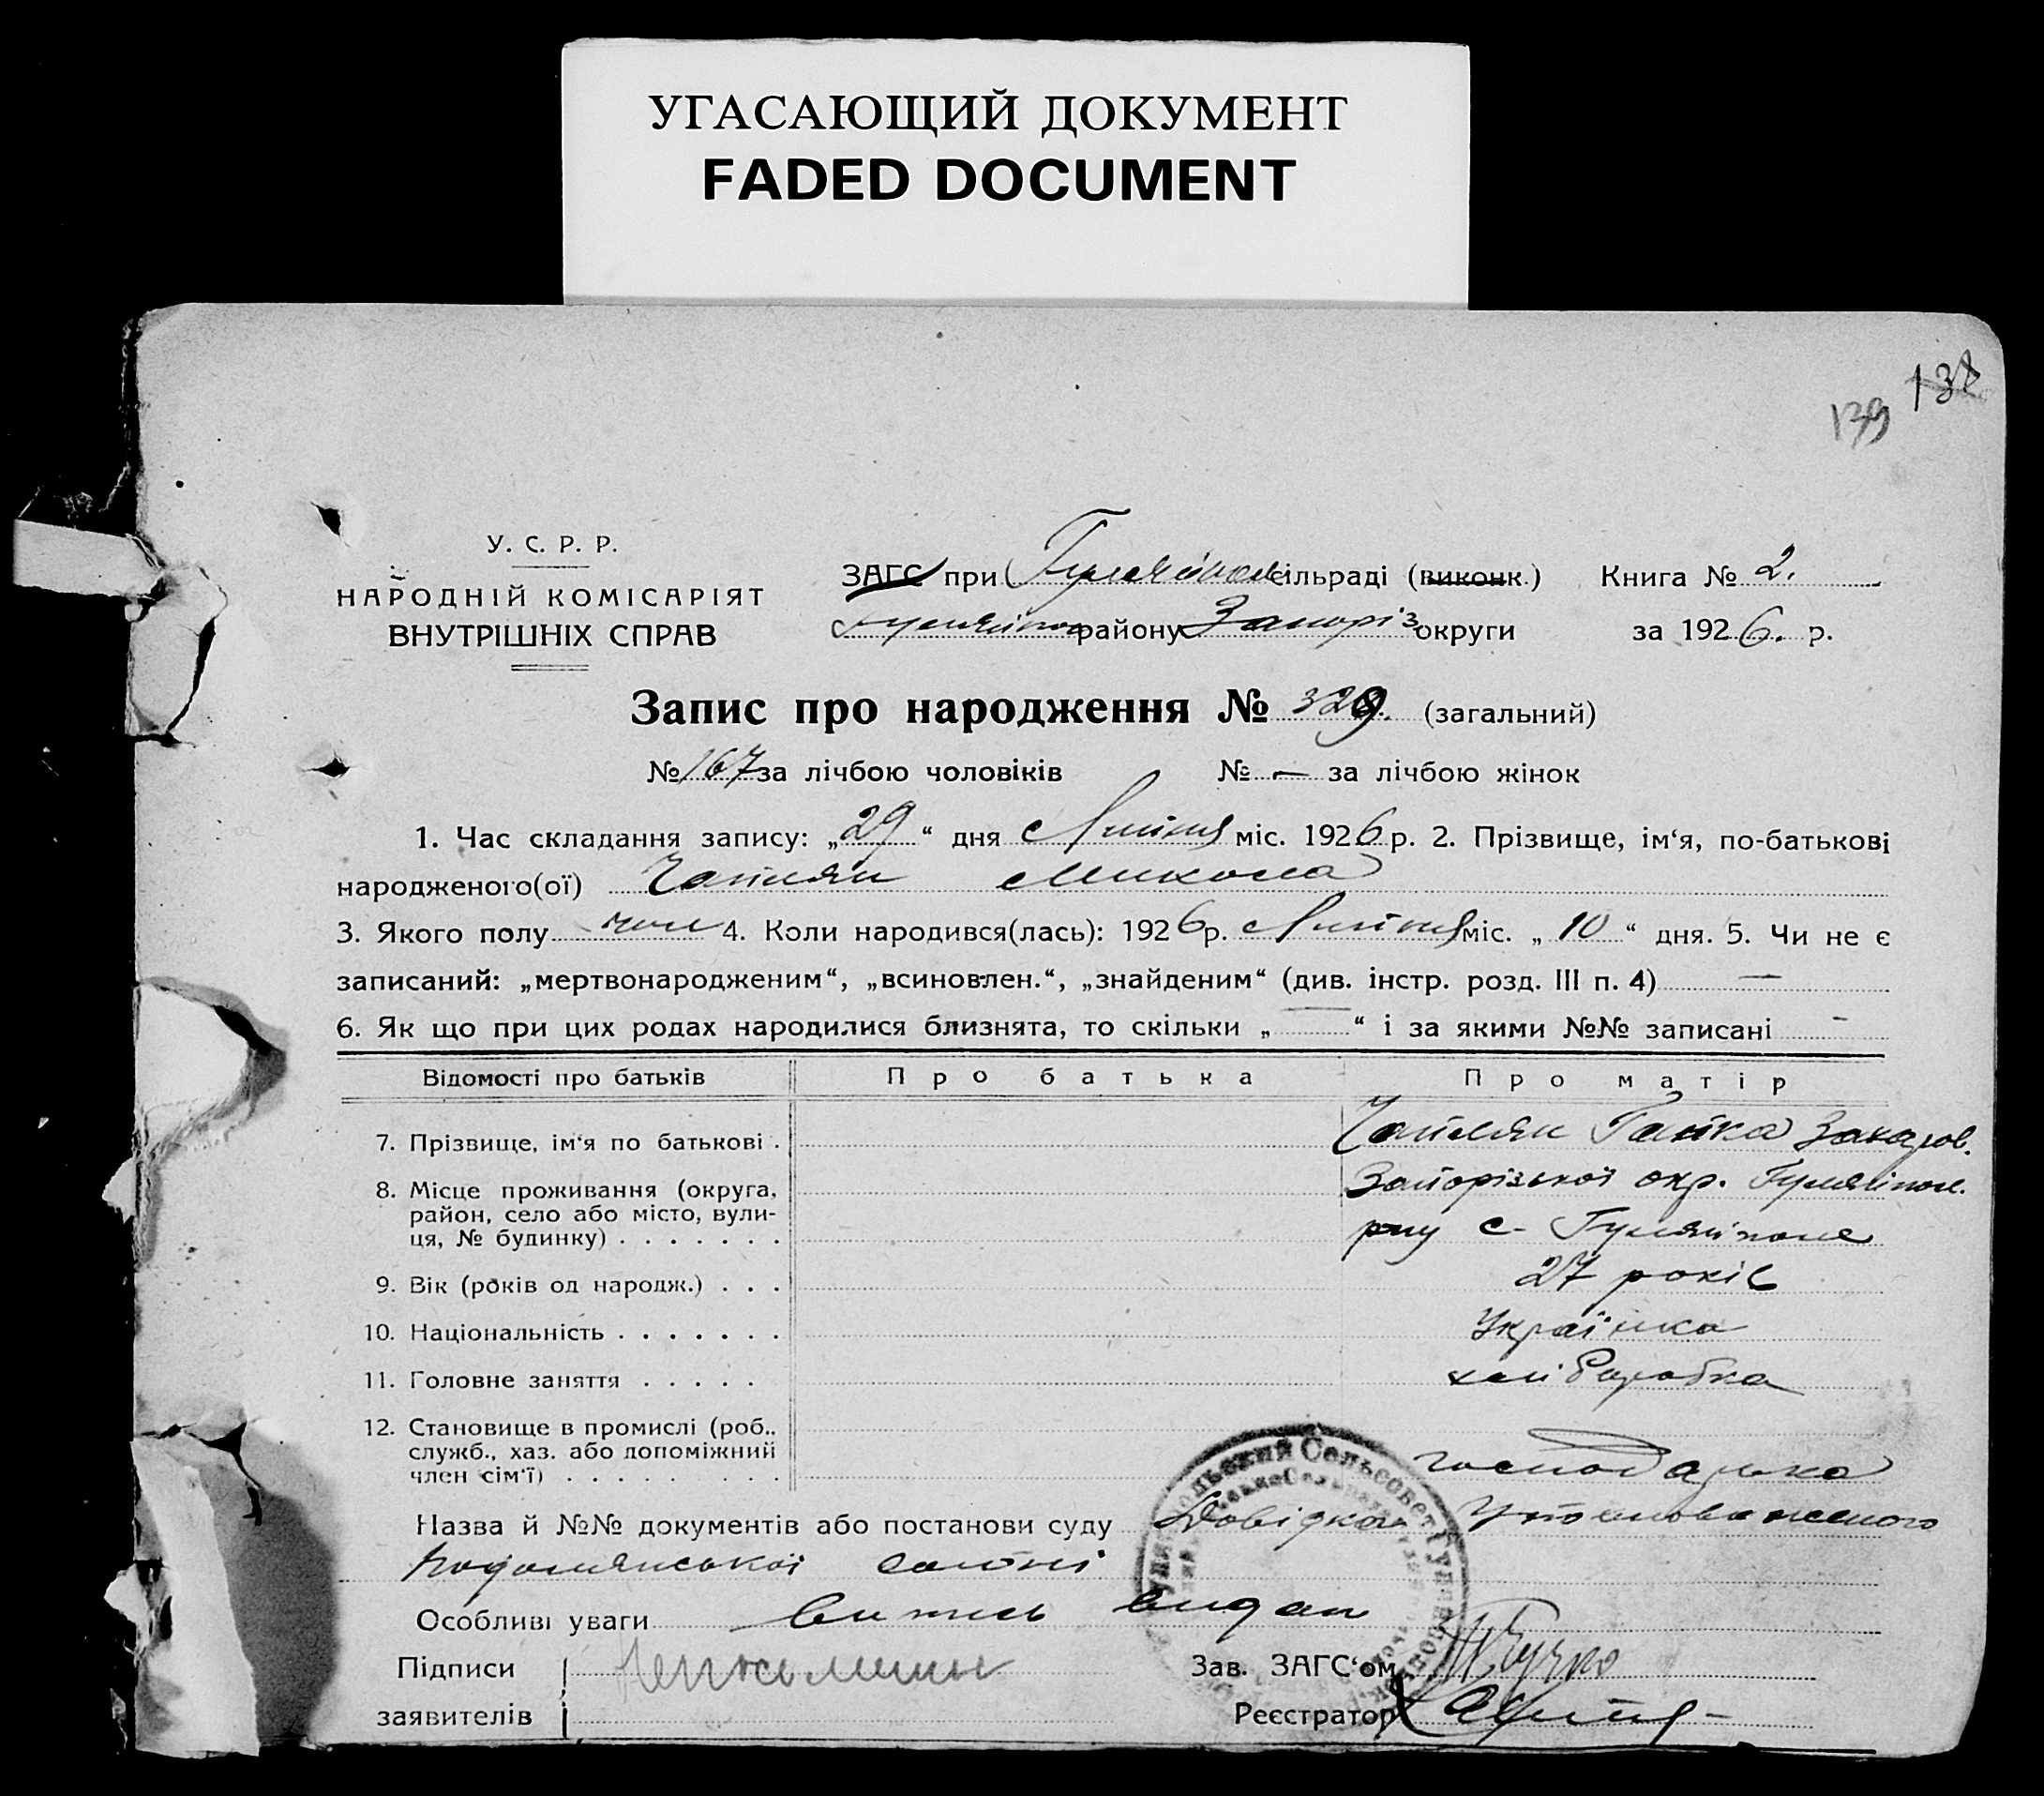 УГАСАЮЩИЙ ДОКУМЕНТ
FADED DOCUMENT
139 132
У. С. Р. Р.
НАРОДНІЙ КОМІСАРІЯТ
ВНУТРІШНІХ СПРАВ
ЗАГС при Гуляйпол сільраді (виконк.) Книга № 2.
Гуляйпол району Запоріз округи за 1926. р.
Запис про народження № 329. (загальний)
№ 167 за лічбою чоловіків № — за лічбою жінок
1. Час складання запису: „29“ дня Липня міс. 1926 р. 2. Прізвище, ім‘я, по-батькові
народженого(ої) Чаплян Микола
3. Якого полу чол 4. Коли народився(лась): 1926 р. Липня міс. „10“ дня. 5. Чи не є
записаний: „мертвонародженим“, „всиновлен.“, „знайденим“ (див. інстр. розд. III п. 4) —
6. Як що при цих родах народилися близнята, то скільки „—“ і за якими №№ записані -
Відомості про батьків Про батька Про матір
7. Прізвище, ім‘я по батькові . Чаплян Ганка Захаров.
8. Місце проживання (округа, Запорізької окр. Гуляйпол.
район, село або місто, вули-
ця, № будинку) . . . . . . . рну с- Гуляйполе
9. Вік (років од народж.) . . . 27 років
10. Національність . . . . . . . Українка
11. Головне заняття . . . . . хліборобка
12. Становище в промислі (роб..
служб., хаз. або допоміжний
член сім‘ї) . . . . . . . . господарка
Назва й №№ документів або постанови суду Довідка Уповноваженого
Подолянської сотні
Особливі уваги випись видан
Підписи Зав. ЗАГС‘ом
заявителів Реєстратор